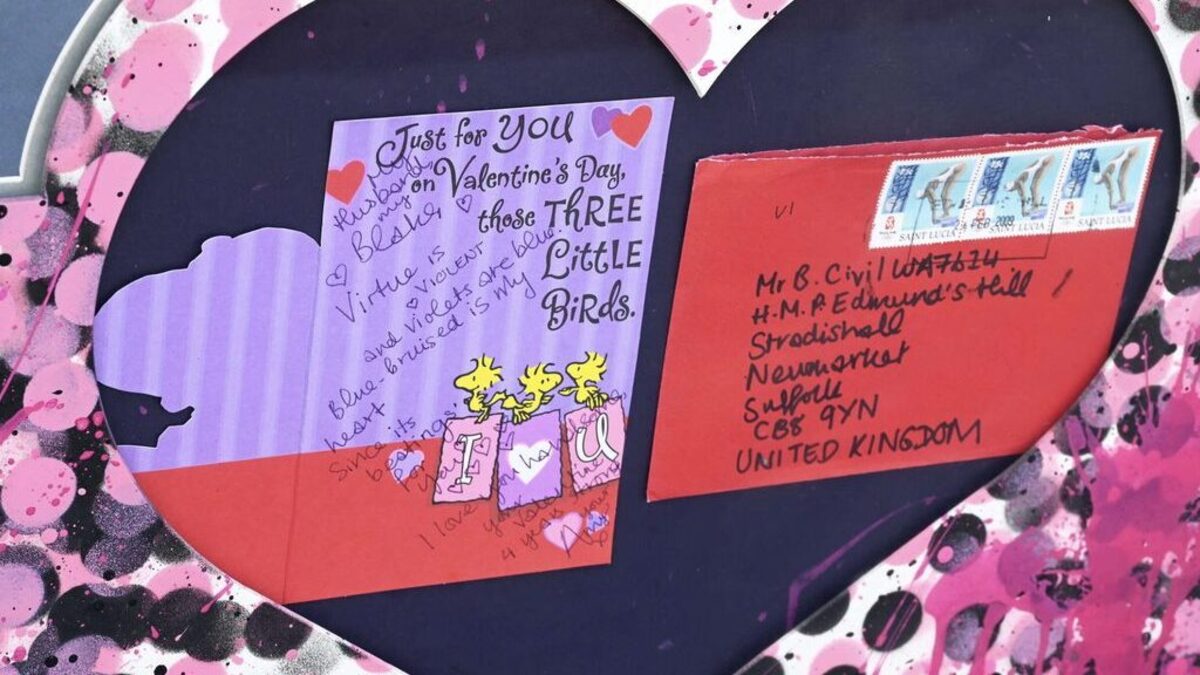 Just for YOU
on Valentine's Day,
those THREE
LittLE
BiRdS.
My
Husband,
my
Blake,
Virtue is
VIOLENT
and violets are blue.
Blue-bruised is my
heart
Since its
beatings
for you
I love you have
you
4 years
your
Amy
I
U
VI
SAINT LUCIA
SAINT LUCIA
SAINT LUCIA
FEB 2009
Mr B. Civil WA7614
H.M.P. Edmund's Hill
Stradishall
Newmarket
Suffolk
CB8 9YN
UNITED KINGDOM